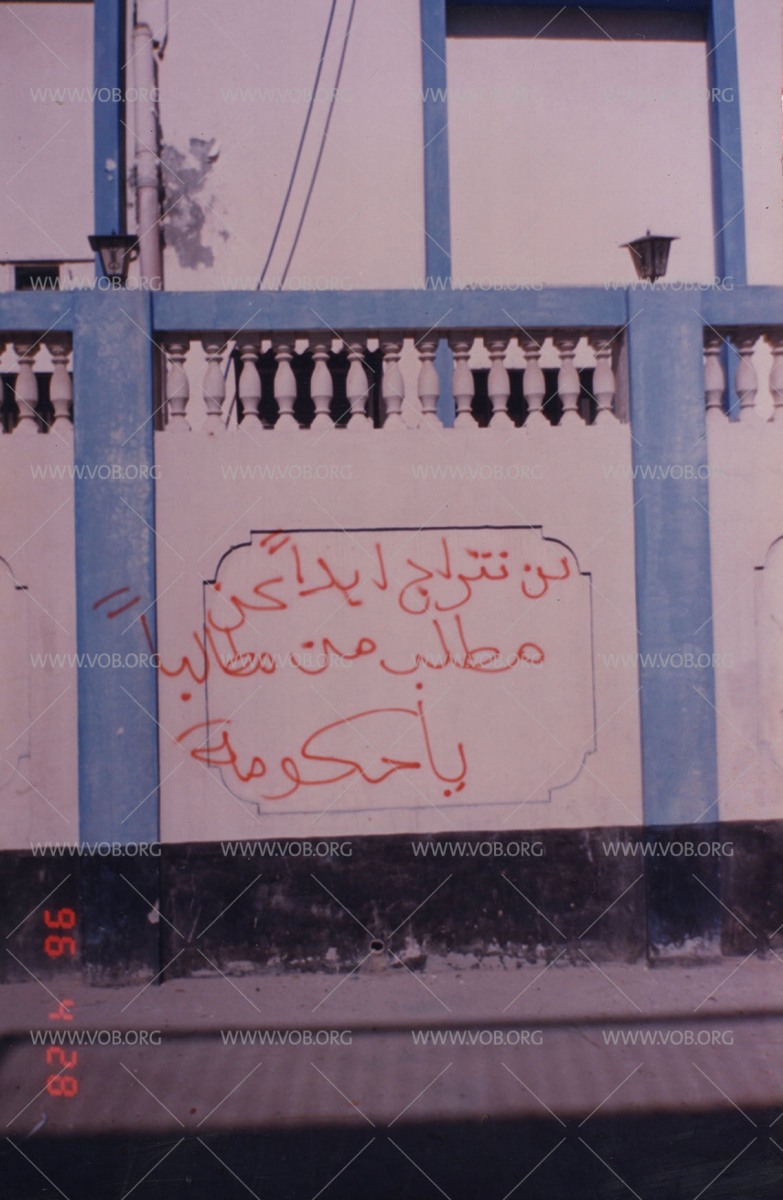 WWW.VOB.ORG WWW.VOB.ORG WWW.VOB.ORG WWW.VOB.ORG
WWW.VOB.ORG WWW.VOB.ORG WWW.VOB.ORG WWW.VOB.ORG
WWW.VOB.ORG WWW.VOB.ORG WWW.VOB.ORG WWW.VOB.ORG
لن نتراج ابداً عن
مطلب من مطالباً
WWW.VOB.ORG WWW.VOB.ORG WWW.VOB.ORG WWW.VOB.ORG
يا حكومة
WWW.VOB.ORG WWW.VOB.ORG WWW.VOB.ORG WWW.VOB.ORG
96 4 28
WWW.VOB.ORG WWW.VOB.ORG WWW.VOB.ORG WWW.VOB.ORG